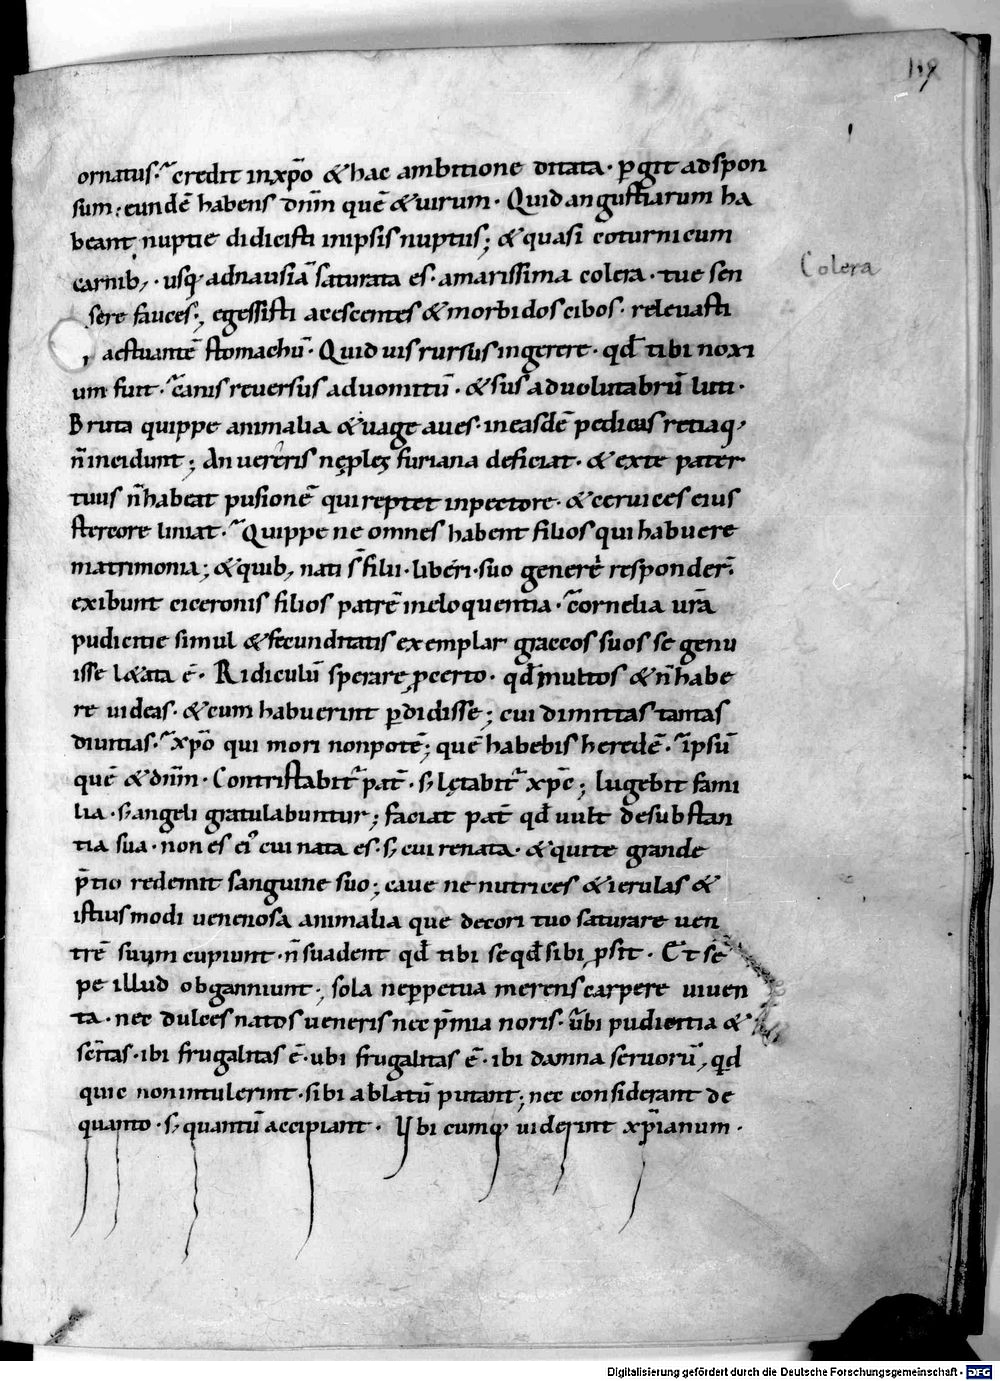 119
ornatus. credit inxp̄o &hac ambitione ditata· ꝑgit adspon
sum; eundē habens dn̄m quē &uirum· Quid angustiarum ha
beant nuptie didicisti inipsis nuptiis; &quasi coturnicum
carnib; usq; adnausiā saturata es· amarissima colera· tue sen
Colera
sere fauces; egessisti acescentes &morbidos cibos· releuasti
aestuantē stomachū· Quid uis rursus ingerere· qd̄ tibi noxi
um fuit· canis reuersus aduomitū· &sus aduolutabrū luti·
Bruta quippe animalia &uage aues· ineasdē pedicas retiaq;
n̄ incidunt; An uereris nę ꝓles furiana deficiat· &exte pater
tuus n̄ habeat pusionē qui reptet inpectore· &ceruices eius
stercore liniat· Quippe ne omnes habent filios qui habuere
matrimonia; &quib; nati s̄ filii· liberi· suo generi responder̄·
exibunt ciceronis filios patrē ineloquentia· cornelia ur̄a
pudicitie simul &fecunditatis exemplar graccos suos se genu
isse l&ata ē· Ridiculū sperare ꝓcerto· qd̄ multos &n̄ habe
re uideas· &cum habuerint ꝑdidisse; cui dimittas tantas
diuitias· xp̄o qui mori nonpotē; quē habebis heredē· ipsū
quē &dn̄m· Contristabit̄ pat̄· s; lętabit̄ xp̄c; lugebit fami
lia· s; angeli gratulabuntur; faciat pat̄ qd̄ uult desubstan
tia sua· non es ei' cui nata es· s; cui renata· &quite grande
p̄tio redemit sanguine suo; caue ne nutrices &ierulas &
istiusmodi uenenosa animalia que decori tuo saturare uen
trē suum cupiunt· n̄ suadent qd̄ tibi se qd̄ sibi ꝓsit· Et sē
pe illud obganniunt; sola neꝑpetua merens carpere iuuen
ta· nec dulces natos ueneris nec p̄mia noris· ubi pudicitia &
sc̄itas· ibi frugalitas ē· ubi frugalitas ē· ibi damna seruorū, qd
quic nonintulerint· sibi ablatū putant; nec considerant de
quanto· s; quantū accipiant· Ubi cumq; uiderint xp̄ianum·
Digitalisierung gefördert durch die Deutsche Forschungsgemeinschaft - DFG